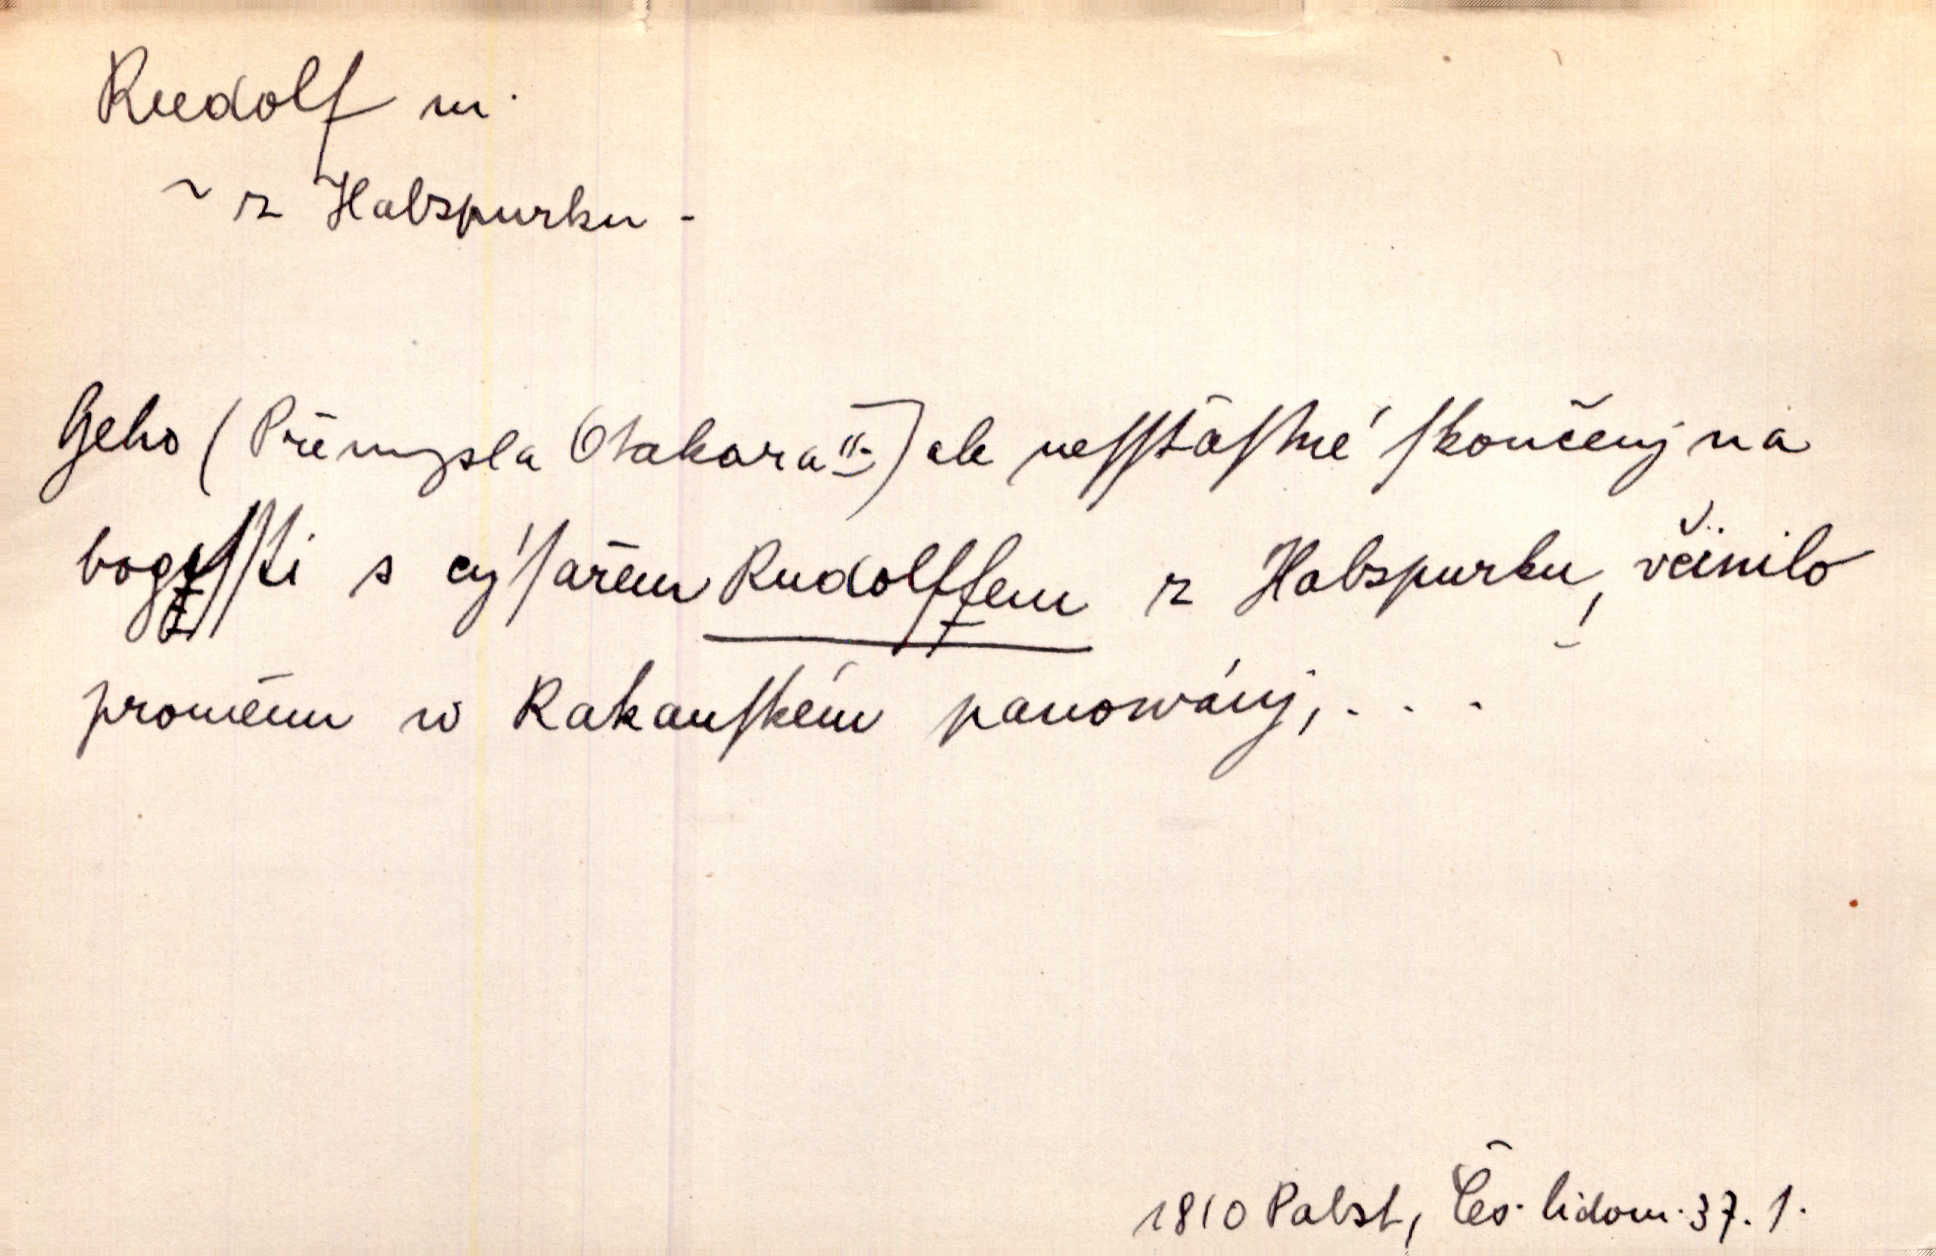 Rudolf m.
~ z Habspurku -
Geho (Přemysla Otakara II.) ale nessťastné skončenj na
bogissti s cýsařem Rudolffem z Habspurku, včinilo
proměnu w Rakauském panowánj, . . .
1810 Pabst, Čes. lidom. 37. 1.